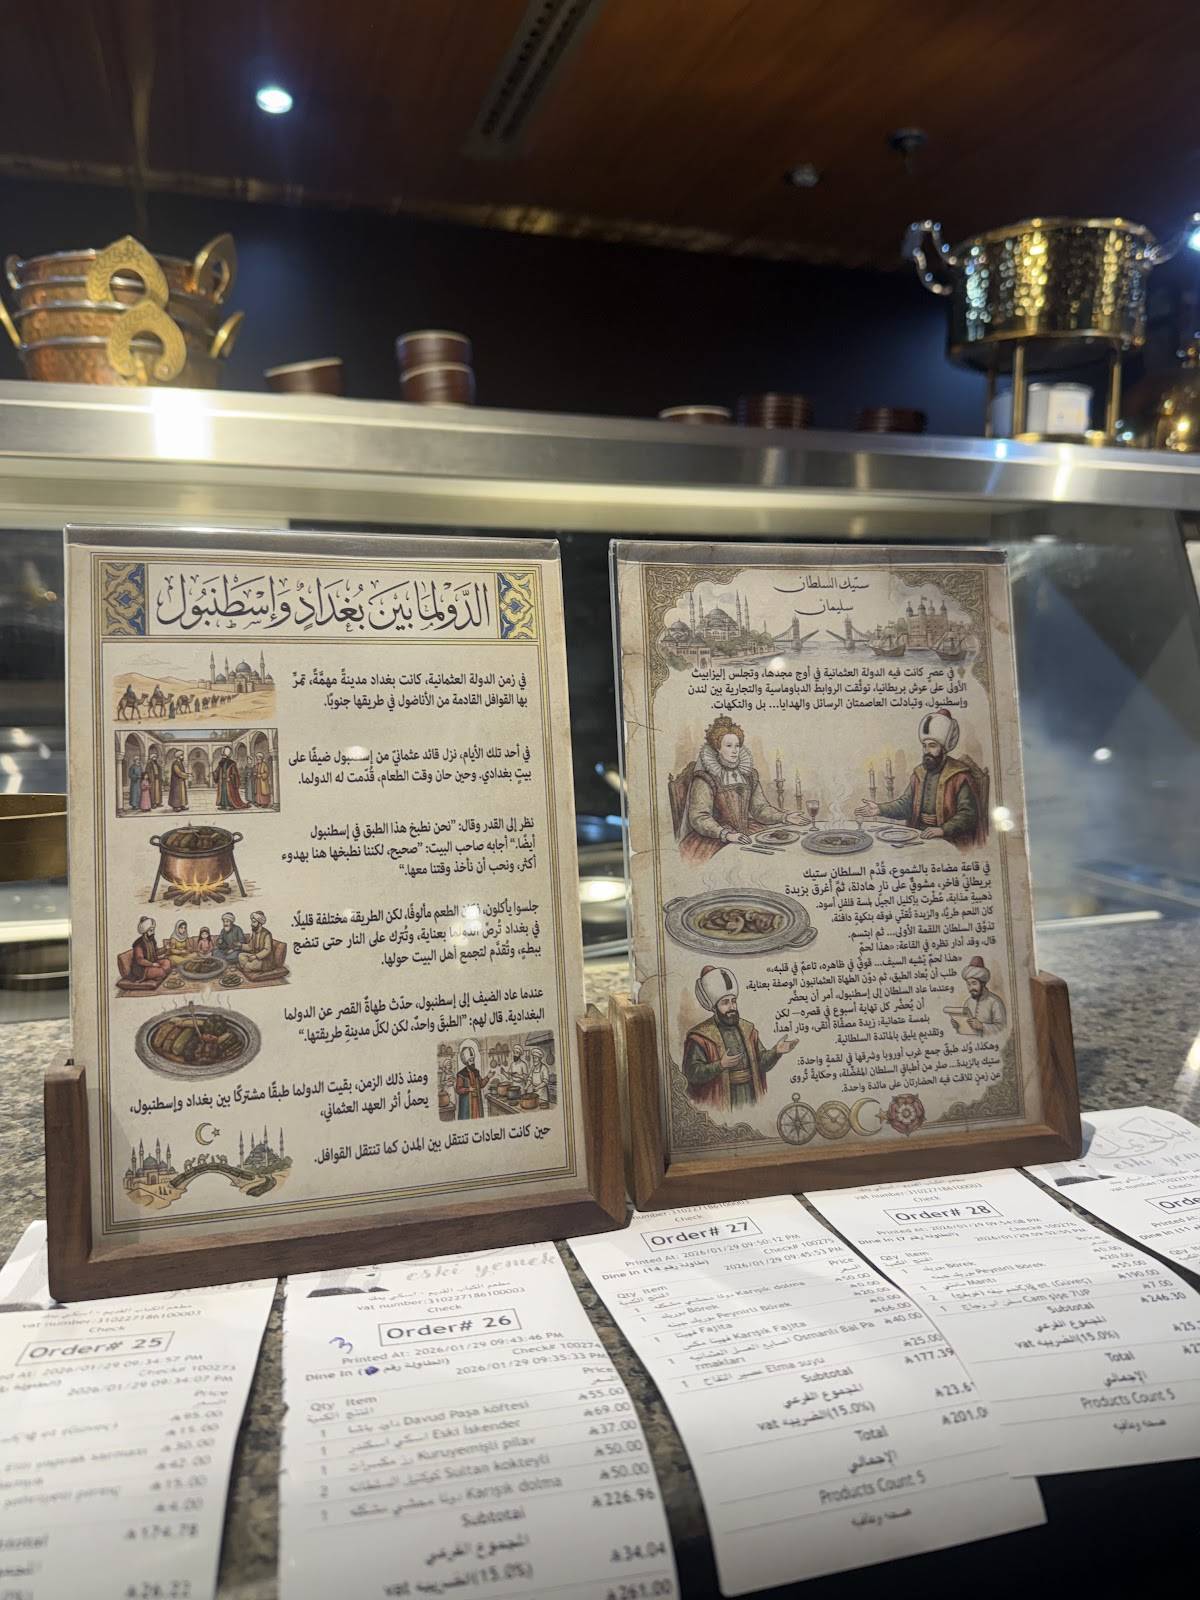 الدَّوْلمَا بَيْنَ بُغْدَادُ وَإِسْطَنْبُول
في زمن الدولة العثمانية، كانت بغداد مدينةً مهمَّةً، تمرّ
بها القوافل القادمة من الأناضول في طريقها جنوبًا.
في أحد تلك الأيام، نزل قائد عثمانيّ من إسطنبول ضيفًا على
بيتٍ بغدادي. وحين حان وقت الطعام، قُدّمت له الدولما.
نظر إلى القدر وقال: "نحن نطبخ هذا الطبق في إسطنبول
أيضًا." أجابه صاحب البيت: "صحيح، لكننا نطبخها هنا بهدوء
أكثر، ونحب أن نأخذ وقتنا معها."
جلسوا يأكلون، الطعم مألوفًا، لكن الطريقة مختلفة قليلًا.
في بغداد تُرصّ الدولما بعناية، وتُترك على النار حتى تنضج
ببطء، وتُقدَّم لتجمع أهل البيت حولها.
عندما عاد الضيف إلى إسطنبول، حدّث طهاةَ القصر عن الدولما
البغدادية. قال لهم: "الطبق واحد، لكن لكلّ مدينةٍ طريقتها."
ومنذ ذلك الزمن، بقيت الدولما طبقًا مشتركًا بين بغداد وإسطنبول،
يحملُ أثر العهد العثماني،
حين كانت العادات تنتقل بين المدن كما تنتقل القوافل.
ستيك السلطان
سليمان
في عصرٍ كانت فيه الدولة العثمانية في أوج مجدها، وتجلس إليزابيث
الأولى على عرش بريطانيا، توثّقت الروابط الدبلوماسية والتجارية بين لندن
وإسطنبول، وتبادلت العاصمتان الرسائل والهدايا... بل والنكهات.
في قاعة مضاءة بالشموع، قُدِّم السلطان ستيك
بريطانيّ فاخر، مشويٌّ على نارٍ هادئة، ثمَّ أُغرق بزبدة
ذهبيةٍ مذابة، عُطّرت بإكليل الجبل لمسة فلفل أسود.
كان اللحم طريًا، والزبدة تُغنّي فوقه بنكهةٍ دافئة.
تذوّق السلطان اللقمة الأولى... ثم ابتسم.
قال، وقد أدار نظره في القاعة: «هذا لحمٌ
«هذا لحمٌ يُشبه السيف... قويٌّ في ظاهره، ناعمٌ في قلبه.»
طلب أن يُعاد الطبق، ثم دوّن الطهاة العثمانيون الوصفة بعناية،
وعندما عاد السلطان إلى إسطنبول، أمر أن يحضَّر
أن يُحضَّر كل نهاية أسبوع في قصره— لكن
بلمسة عثمانية: زبدة مصفّاة أنقى، ونار أهدأ،
وتقديم يليق بالمائدة السلطانية.
وهكذا، وُلد طبقٌ جمع غرب أوروبا وشرقها في لقمةٍ واحدة:
ستيك بالزبدة... صار من أطباق السلطان المفضّلة، وحكايةً تُروى
عن زمنٍ تلاقت فيه الحضارتان على مائدة واحدة.
vat number:310227186100003
Check
Order# 25
Printed At: 2026/01/29 09:34:57 PM
Check# 100273
2026/01/29 09:34:07 PM
Price
174.78
26.22
eski yemek
vat number:310227186100003
Check
Order# 26
3
Printed At: 2026/01/29 09:43:46 PM
Check# 100274
Dine In
2026/01/29 09:35:33 PM
Qty Item Price
1 داود باشا Davud Paşa köftesi 55.00
1 اسكي اسكندر Eski İskender 69.00
1 رز مكسرات Kuruyemişli pilav 37.00
2 كوكتيل السلطانه Sultan kokteyli 50.00
1 دولما محشي مشكله Karışık dolma 50.00
Subtotal 226.96
المجموع الفرعي
vat الضريبه(15.0%) 34.04
261.00
Check
Order# 27
Printed At: 2026/01/29 09:50:12 PM
Check# 100275
Dine In (طاولة رقم 14)
2026/01/29 09:45:53 PM
Qty Item Price
1 دولما محشي مشكله Karışık dolma 50.00
1 بوريك Börek 0.00
بوريك جبنه Peynirli Börek 20.00
1 فهيتا Fajita 0.00
فهيتا مكس Karışık Fajita 66.00
1 اصابع العسل العثمانيه Osmanlı Bal Pa 40.00
rmakları
1 عصير التفاح Elma suyu 25.00
Subtotal 177.39
المجموع الفرعي
vat الضريبه(15.0%) 23.61
Total 201.0
الإجمالي
Products Count 5
صحه وعافيه
vat number:310227186100003
Check
Order# 28
Printed At: 2026/01/29 09:54:08 PM
Check# 100276
Dine In (طاولة رقم 7)
Qty Item Price
1 بوريك Börek 0.00
بوريك جبنه Peynirli Börek 20.00
Mantı 55.00
2 et (Güveç) 190.00
1 سفن اب زجاج Cam şişe 7UP 7.00
Subtotal 246.30
المجموع الفرعي
vat الضريبه(15.0%)
Total
الإجمالي
Products Count 5
صحه وعافيه
eski yemek
Check